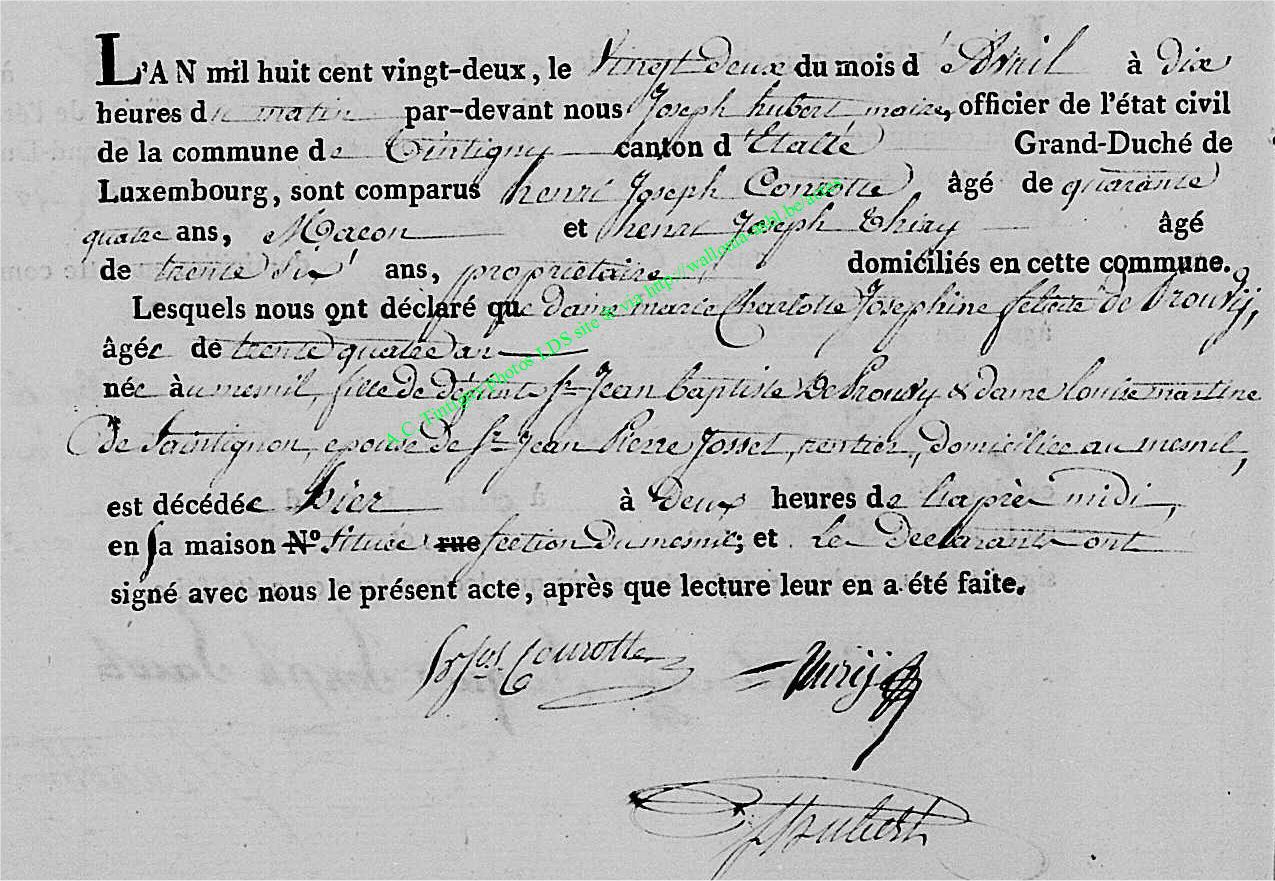 L'AN mil huit cent vingt-deux, le Vingt deux du mois d'Avril à dix
heures du matin par-devant nous Joseph hubert maire, officier de l'état civil
de la commune de Tintigny canton d'Etalle Grand-Duché de
Luxembourg, sont comparus henri Joseph Conrotte âgé de quarante
quatre ans, Macon et henri Joseph Thiry âgé
de trente six ans, propriétaire domiciliés en cette commune.
Lesquels nous ont déclaré que dame marie Charlotte Josephine felicité de Prouvij,
âgée de trente quatre an
née au mesnil, fille de défunts Sr Jean baptiste De Prouvy & dame Louise martine
De Saintignon, epouse de Sr Jean Pierre Josset, rentier, domiciliée au mesnil,
est décédée hier à Deux heures de l'après midi,
en sa maison N° située rue section du mesnil; et Les Declarants ont
signé avec nous le présent acte, après que lecture leur en a été faite.
Conrotte Thirij
Hubert
A.C. Tintigny photos LDS site & via http://wallonia-asbl.be/actes